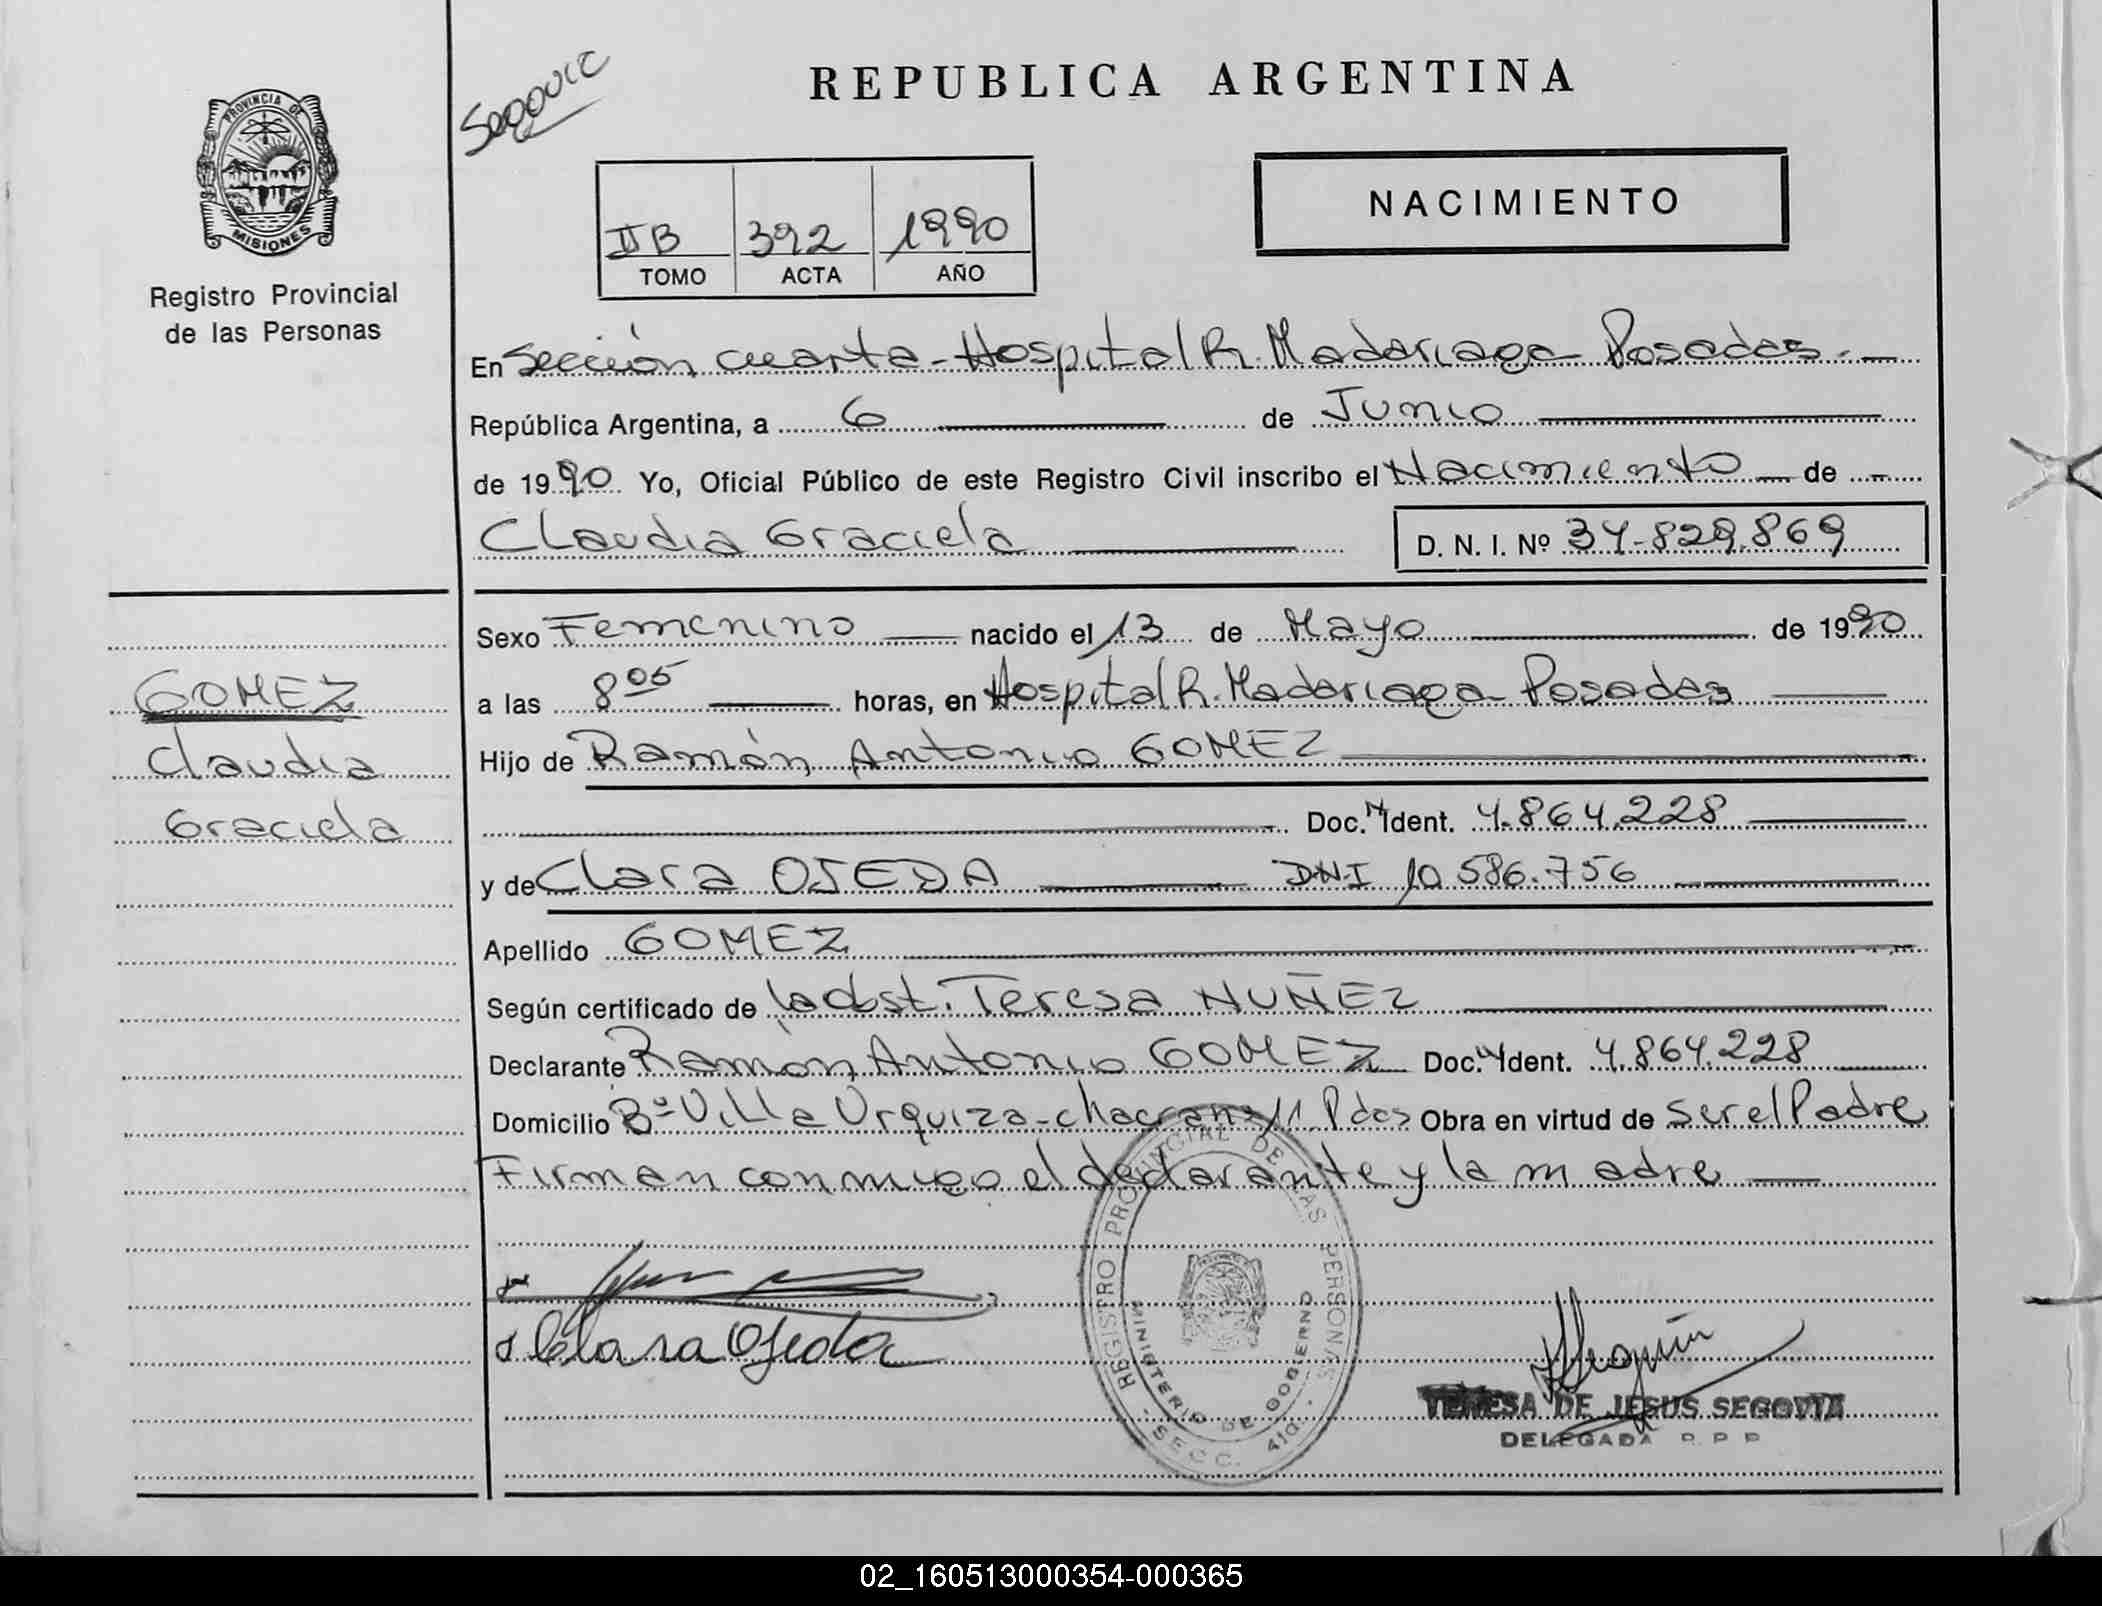 Segovic
REPUBLICA ARGENTINA
PROVINCIA DE
MISIONES
Registro Provincial
de las Personas
NACIMIENTO
II B 392 1990
TOMO ACTA AÑO
En Sección cuarta - Hospital R. Madariaga Posadas. —
República Argentina, a 6 de Junio
de 1990 Yo, Oficial Público de este Registro Civil inscribo el Nacimiento — de —
Claudia Graciela D. N. I. Nº 34.829.869
Sexo Femenino nacido el 13 de Mayo de 1990
a las 8 05 horas, en Hospital R. Madariaga Posadas
Hijo de Ramón Antonio GOMEZ
Doc. Ident. 4.864.228
y de Clara OJEDA DNI 10.586.756
Apellido GOMEZ
Según certificado de la obst. Teresa NUÑEZ
Declarante Ramón Antonio GOMEZ Doc. Ident. 4.864.228
Domicilio Bº Villa Urquiza - chacra nº 11 Pdas Obra en virtud de ser el Padre
Firman conmigo el declarante y la madre —
GOMEZ
Claudia
Graciela
Clara Ojeda
REGISTRO PROVINCIAL DE LAS PERSONAS
MINISTERIO DE GOBIERNO
- SECC. 4ta. -
TERESA DE JESUS SEGOVIA
DELEGADA R. P. P.
02_160513000354-000365